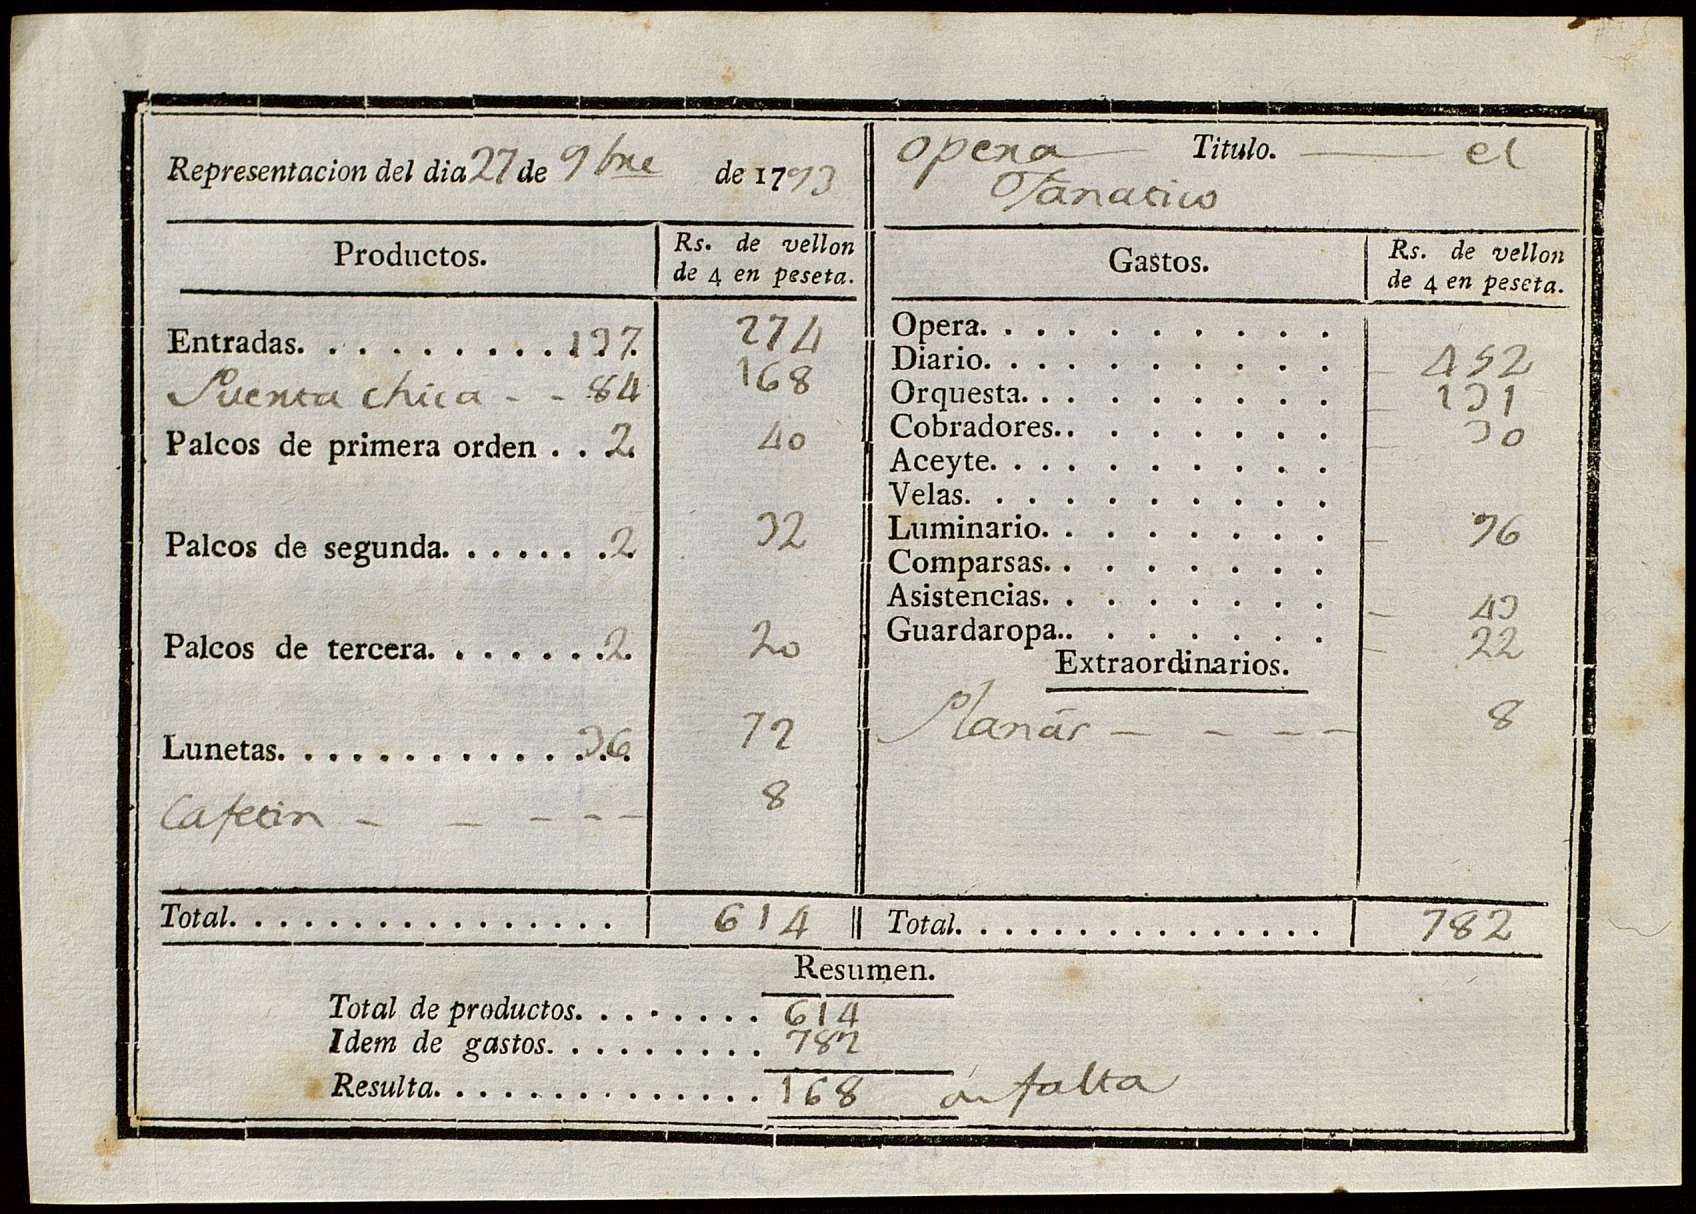 Representacion del dia 27 de 9bre de 1793
opera Titulo. el
Fanatico
Productos.
Rs. de vellon
de 4 en peseta.
Entradas. 137 274
Puerta chica - - 84 168
Palcos de primera orden . . 2 40
Palcos de segunda. 2 32
Palcos de tercera. 2 20
Lunetas. 36 72
Cafetin - - - - - 8
Total. 614
Gastos.
Rs. de vellon
de 4 en peseta.
Opera.
Diario. 452
Orquesta. 131
Cobradores.. 30
Aceyte.
Velas.
Luminario. 96
Comparsas.
Asistencias. 43
Guardaropa.. 22
Extraordinarios.
Planār - - - - 8
Total. 782
Resumen.
Total de productos. 614
Idem de gastos. 782
Resulta. 168 falta